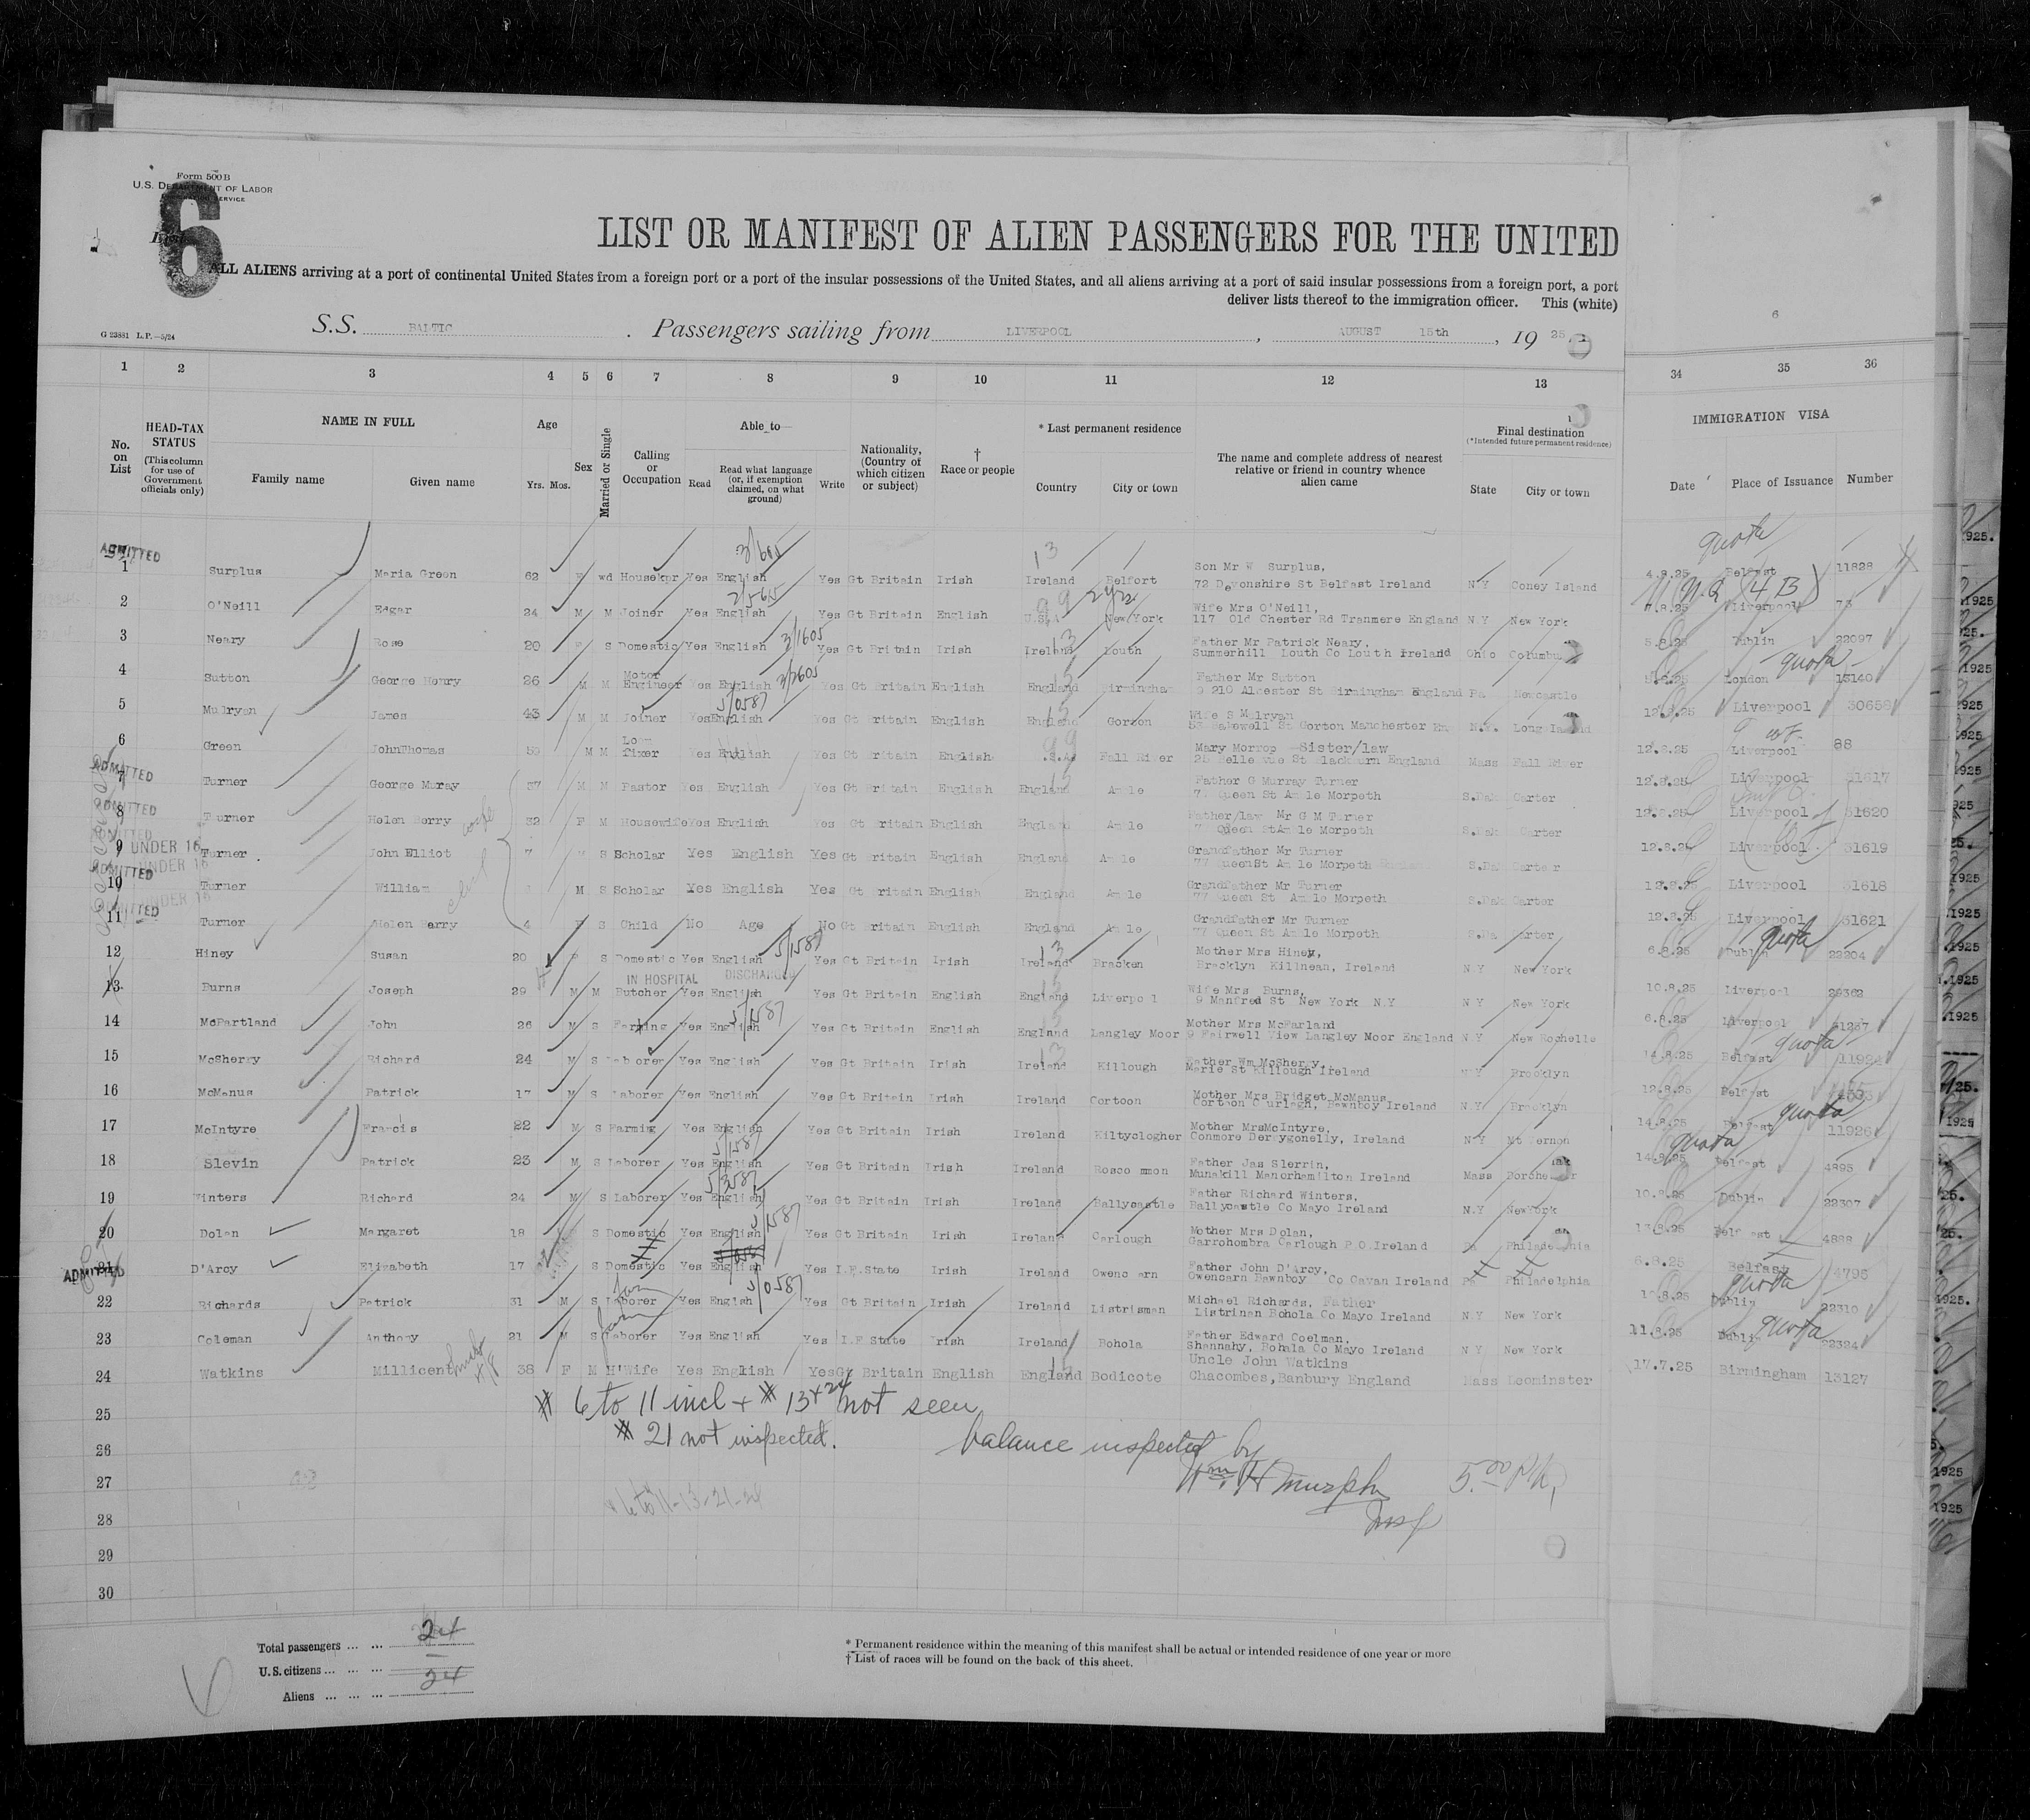 Form 500 B
U.S. DEPARTMENT OF LABOR
6
List
LIST OR MANIFEST OF ALIEN PASSENGERS FOR THE UNITED
ALL ALIENS arriving at a port of continental United States from a foreign port or a port of the insular possessions of the United States, and all aliens arriving at a port of said insular possessions from a foreign port, a port
deliver lists thereof to the immigration officer. This (white)
6
G 23881 L.P.—5/24
S.S. BALTIC . Passengers sailing from LIVERPOOL , AUGUST 15th , 19 25
1 2 3 4 5 6 7 8 9 10 11 12 13 34 35 36
No. on List
HEAD-TAX STATUS (This column for use of Government officials only)
NAME IN FULL
Family name Given name
Age
Yrs. Mos.
Sex
Married or Single
Calling or Occupation
Able to—
Read Read what language (or, if exemption claimed, on what ground) Write
Nationality, (Country of which citizen or subject)
† Race or people
* Last permanent residence
Country City or town
The name and complete address of nearest relative or friend in country whence alien came
Final destination
(*Intended future permanent residence)
State City or town
IMMIGRATION VISA
Date Place of Issuance Number
ADMITTED
quota
1 Surplus Maria Green 62 F wd Housekpr Yes English Yes Gt Britain Irish Ireland Belfort Son Mr W Surplus, 72 Devonshire St Belfast Ireland N Y Coney Island 4.8.25 Belfast 11828
2 O'Neill Edgar 24 M M Joiner Yes English Yes Gt Britain English U.S.A New York Wife Mrs O'Neill, 117 Old Chester Rd Tranmere England N Y New York 7.8.25 Liverpool 73
3 Neary Rose 20 F S Domestic Yes English 3/1605 Yes Gt Britain Irish Ireland Louth Father Mr Patrick Neary, Summerhill Louth Co Louth Ireland Ohio Columbu 5.8.25 Dublin 22097
quota
4 Sutton George Henry 26 M M Motor Engineer Yes English Yes Gt Britain English England Birmingham Father Mr Sutton 9 210 Alcester St Birmingham England Pa Newcastle London 13140
5 Mulryan James 43 M M Joiner Yes English 5/0587 Yes Gt Britain English England Gorton Wife S Mulryan 53 Bakewell St Gorton Manchester N.Y. Long Island 12.8.25 Liverpool 30658
6 Green John Thomas M M Loom fixer Yes English Yes Gt Britain English .S.A. Fall River Mary Morrop - Sister/law 25 Belle vue St Blackburn England Mass Fall River 12.8.25 Liverpool 88
ADMITTED
7 Turner George Muray 37 M M Pastor Yes English Yes Gt Britain English England Am le Father G Murray Turner 77 Queen St Am le Morpeth S.Dak Carter 12.8.25 Liverpool 31617
ADMITTED
8 Turner Helen Berry wife 32 F M Housewife Yes English Yes Gt Britain English England Am le Father/law Mr G M Turner 7 Queen St Am le Morpeth S.Dak Carter 12.8.25 Liverpool 31620
ADMITTED
9 UNDER 16 Turner John Elliot 7 M S Scholar Yes English Yes Gt Britain English England Am le Grandfather Mr Turner 77 Queen St Am le Morpeth S.Dak Carter 12.8.25 Liverpool 31619
ADMITTED UNDER 16
10 Turner William M S Scholar Yes English Yes Gt Britain English England Am le Grandfather Mr Turner 77 Queen St Am le Morpeth S.Dak Carter 12.8.25 Liverpool 31618
ADMITTED UNDER 16
11 Turner Helen Berry 4 F S Child No Age No Gt Britain English England Am le Grandfather Mr Turner 77 Queen St Am le Morpeth S.Da Carter 12.8.25 Liverpool 31621
quota
12 Hiney Susan 20 F S Domestic Yes English 5/1587 Yes Gt Britain Irish Ireland Bracken Mother Mrs Hiney, Bracklyn Killnean, Ireland N Y New York 6.8.25 Dublin 22204
IN HOSPITAL DISCHARGED
13 Burns Joseph 29 M M Butcher Yes English Yes Gt Britain English England Liverpo l Wife Mrs Burns, 9 Manfred St New York N.Y N Y New York 10.8.25 Liverpool 29362
14 McPartland John 26 M S Farming Yes English 5/1587 Yes Gt Britain English England Langley Moor Mother Mrs McFarland 9 Fairwell View Langley Moor England N Y New Rochelle 6.8.25 Liverpool 31237
quota
15 McSherry Richard 24 M S Laborer Yes English Yes Gt Britain Irish Ireland Killough Father Wm McSherry, Marie St Killough Ireland N Y Brooklyn 14.8.25 Belfast 11924
16 McManus Patrick 17 M S Laborer Yes English Yes Gt Britain Irish Ireland Cortoon Mother Mrs Bridget McManus Cortoon Curlagh, Bawnboy Ireland N Y Brooklyn 12.8.25 Belfast
quota
17 McIntyre Francis 22 M S Farming Yes English Yes Gt Britain Irish Ireland Kiltyclogher Mother MrsMcIntyre, Conmore Derrygonelly, Ireland N Y Mt Vernon 14.8.25 Belfast 11926
quota
18 Slevin Patrick 23 M S Laborer Yes English 5/1587 Yes Gt Britain Irish Ireland Rosco mmon Father Jas Slerrin, Munakill Manorhamilton Ireland Mass Dorchester Belfast 4895
19 Winters Richard 24 M S Laborer Yes English Yes Gt Britain Irish Ireland Ballycastle Father Richard Winters, Ballycastle Co Mayo Ireland N.Y NewYork 10.8.25 Dublin 22307
20 Dolan Margaret 18 S Domestic Yes English 5/1587 Yes Gt Britain Irish Ireland Carlough Mother Mrs Dolan, Garrohombra Carlough P O Ireland Pa Philadelphia 13.8.25 Belfast 4888
ADMITTED
21 D'Arcy Elizabeth 17 S Domestic Yes English Yes I.F.State Irish Ireland Owenc arn Father John D'Arcy, Owencarn Bawnboy Co Cavan Ireland Pa Philadelphia 6.8.25 Belfast 4795
quota
22 Richards Patrick 31 M S Laborer Yes English 5/0587 Yes Gt Britain Irish Ireland Listrisman Michael Richards, Father Listrinan Bohola Co Mayo Ireland N.Y New York 10.8.25 Dublin 22310
quota
23 Coleman Anthony 21 M S Laborer Yes English Yes I.F State Irish Ireland Bohola Father Edward Coelman, Shannahy, Bohala Co Mayo Ireland N Y New York 11.8.25 Dublin 22324
24 Watkins Millicent 38 F M H'Wife Yes English Yes Gt Britain English England Bodicote Uncle John Watkins Chacombes, Banbury England Mass Leominster 17.7.25 Birmingham 13127
25 # 6 to 11 incl + # 13 + 24 not seen
26 # 21 not inspected. balance inspected by
27 Wm. H Murphy 5.00 P.M.
28 # 6 to 11-13-21-24 Insp
29
30
Total passengers ... ... 24
U.S. citizens ... ... ...
Aliens ... ... ... 24
* Permanent residence within the meaning of this manifest shall be actual or intended residence of one year or more
† List of races will be found on the back of this sheet.